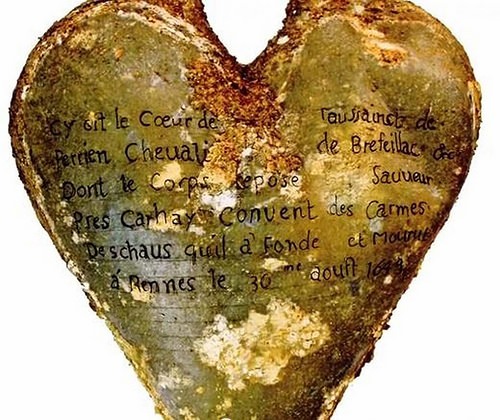 Cy Git le Coeur de Toussainct de
Perrien Chevali de Brefeillac &c
Dont le Corps repose Sauveur
Pres Carhay Convent des Carmes
Deschaus quil a Fonde et Mourut
á Rennes le 30me aoust